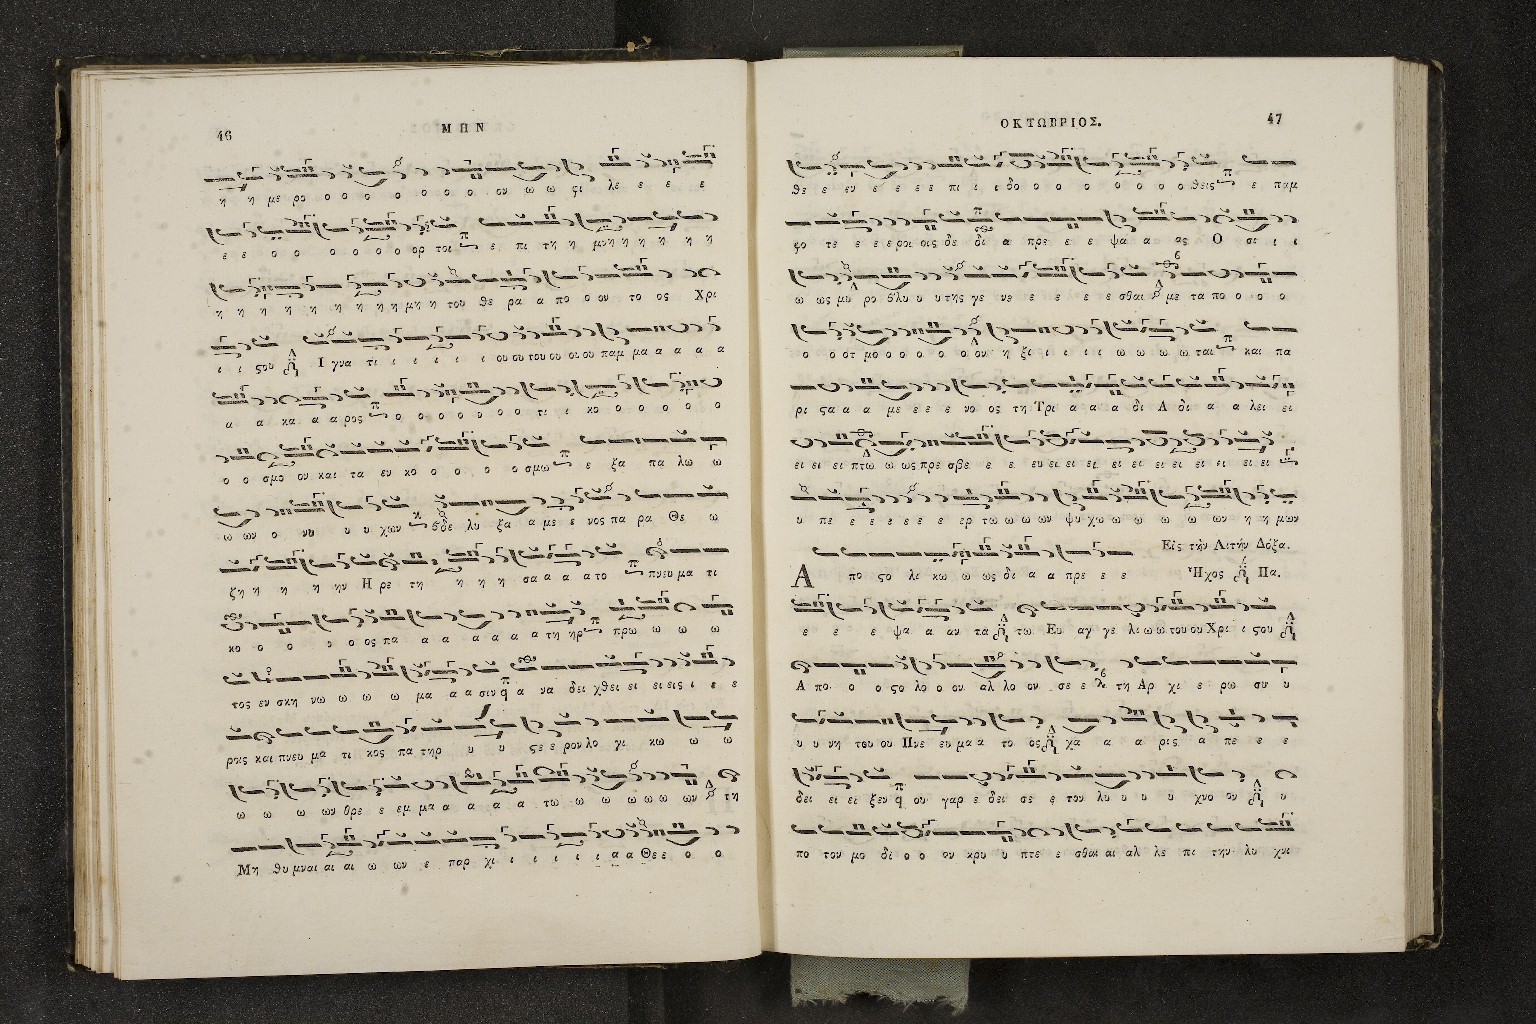 46
ΜΗΝ
η η με ρο ο ο ο ο ο ο ο ο ου ω ω ςι λε ε ε ε
ε ε ο ο ο ο ο ο ορ τοι ε πι τη η μνη η η η η η
η η η η η η η η η μη η του θε ρα α πο ο ου το ος Χρι
ι ι ςου Ι γνα τι ι ι ι ι ι ου ου του ου ου ου παμ μα α α α α
α α κα α α ρος ο ο ο ο ο ο ο τι ι κο ο ο ο ο ο
ο ο σμο ου και τα ευ κο ο ο ο ο ο σμω ε ξα πα λω ω
ω ων ο νυ υ υ χων βδε λυ ξα α με ε νος πα ρα Θε ω
ζη η η η ην Η ρε τη η η η σα α α α το πνευ μα τι
κο ο ο ο ο ο ος πα α α α α α α τη ηρ πρω ω ω ω
τος εν σκη νω ω ω ω μα α α σιν α να δει χθει ει ει εις ι ε ε
ραις και πνευ μα τι κος πα τηρ υ υ ςε ε ρου λο γι κω ω ω
ω ω ω ων θρε ε εμ μα α α α α τω ω ω ω ω ω ων τη
Μη θυ μναι αι αι ω ων ε παρ χι ι ι ι ι ι α α Θε ε ο ο
ΟΚΤΩΒΡΙΟΣ.
47
θε ε ευ ε ε ε ε πι ι ι δο ο ο ο ο ο ο ο ο θεις ε παμ
φο τε ε ε ε ροι οις δε δι α πρε ε ε ψα α α ας Ο σι ι ι
ω ως μυ ρο βλυ υ υ της γε νε ε ε ε ε ε σθαι με τα πο ο ο ο
ο ο οτ μο ο ο ο ο ο ου η ξι ι ι ι ι ω ω ω ω ται και πα
ρι ςα α α με ε ε ε νο ος τη Τρι α α α δι Α δι α α λει ει
ει ει ει πτω ω ως πρε σβε ε ε ευ ει ει ει ει ει ει ει ει ει ει ει
υ πε ε ε ε ε ε ε ερ τω ω ω ων ψυ χω ω ω ω ω ων η η μων
Εἰς τὴν Λιτὴν Δόξα.
Α πο ςο λι κω ω ως δι α α πρε ε ε Ἦχος Πα.
ε ε ε ψα α αν τα τω Ευ αγ γε λι ω ω του ου Χρι ι ςου
Α πο ο ο ςο λο ο ον αλ λο ον σε ε τη Αρ χι ε ρω συ υ
υ υ νη του ου Πνε ευ μα α το ος χα α α ρις α πε ε ε
δει ει ει ξεν ου γαρ ε δει σε ε τον λυ υ υ υ χνο ον υ
πο τον μο δι ο ο ον κρυ υ πτε ε σθαι αι αλ λε πι την λυ χνι